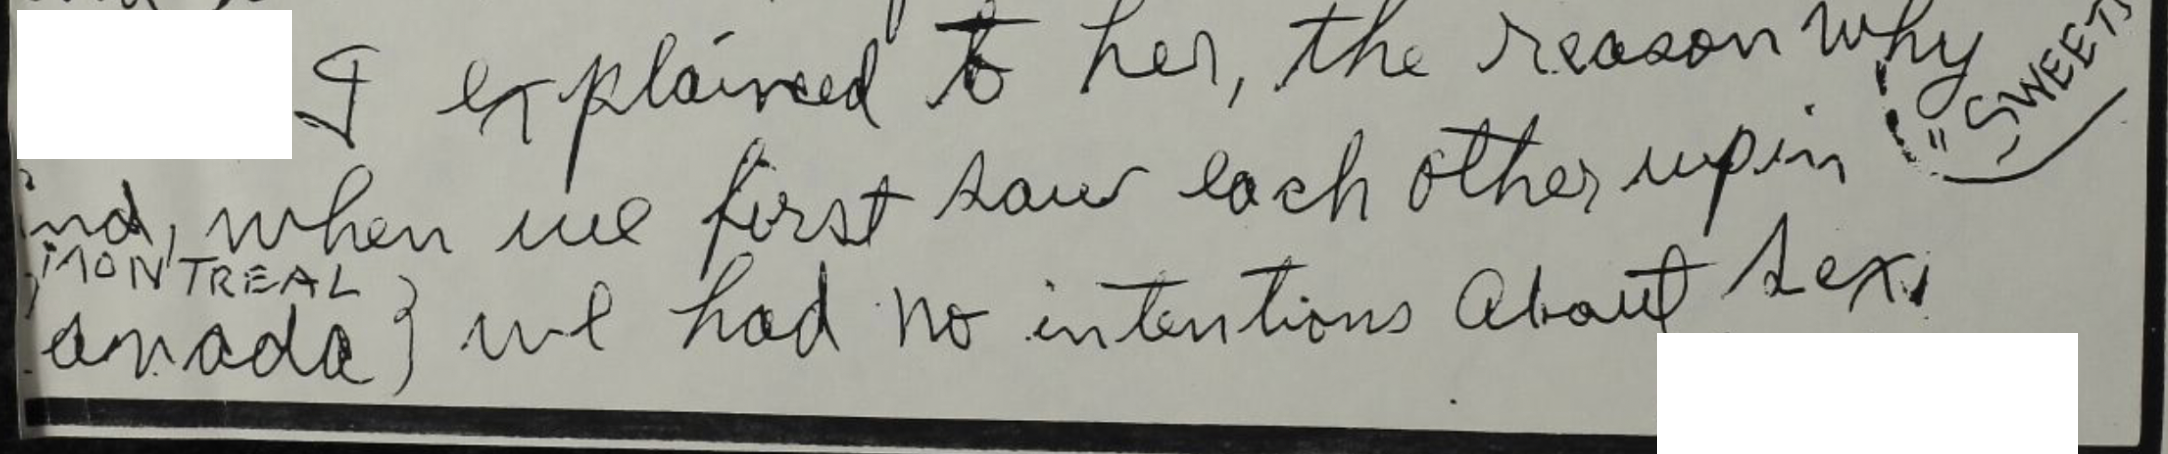 I explained to her, the reason why
ind, when we first saw each other up in
MONTREAL
anada} we had no intentions About sex.
"SWEET